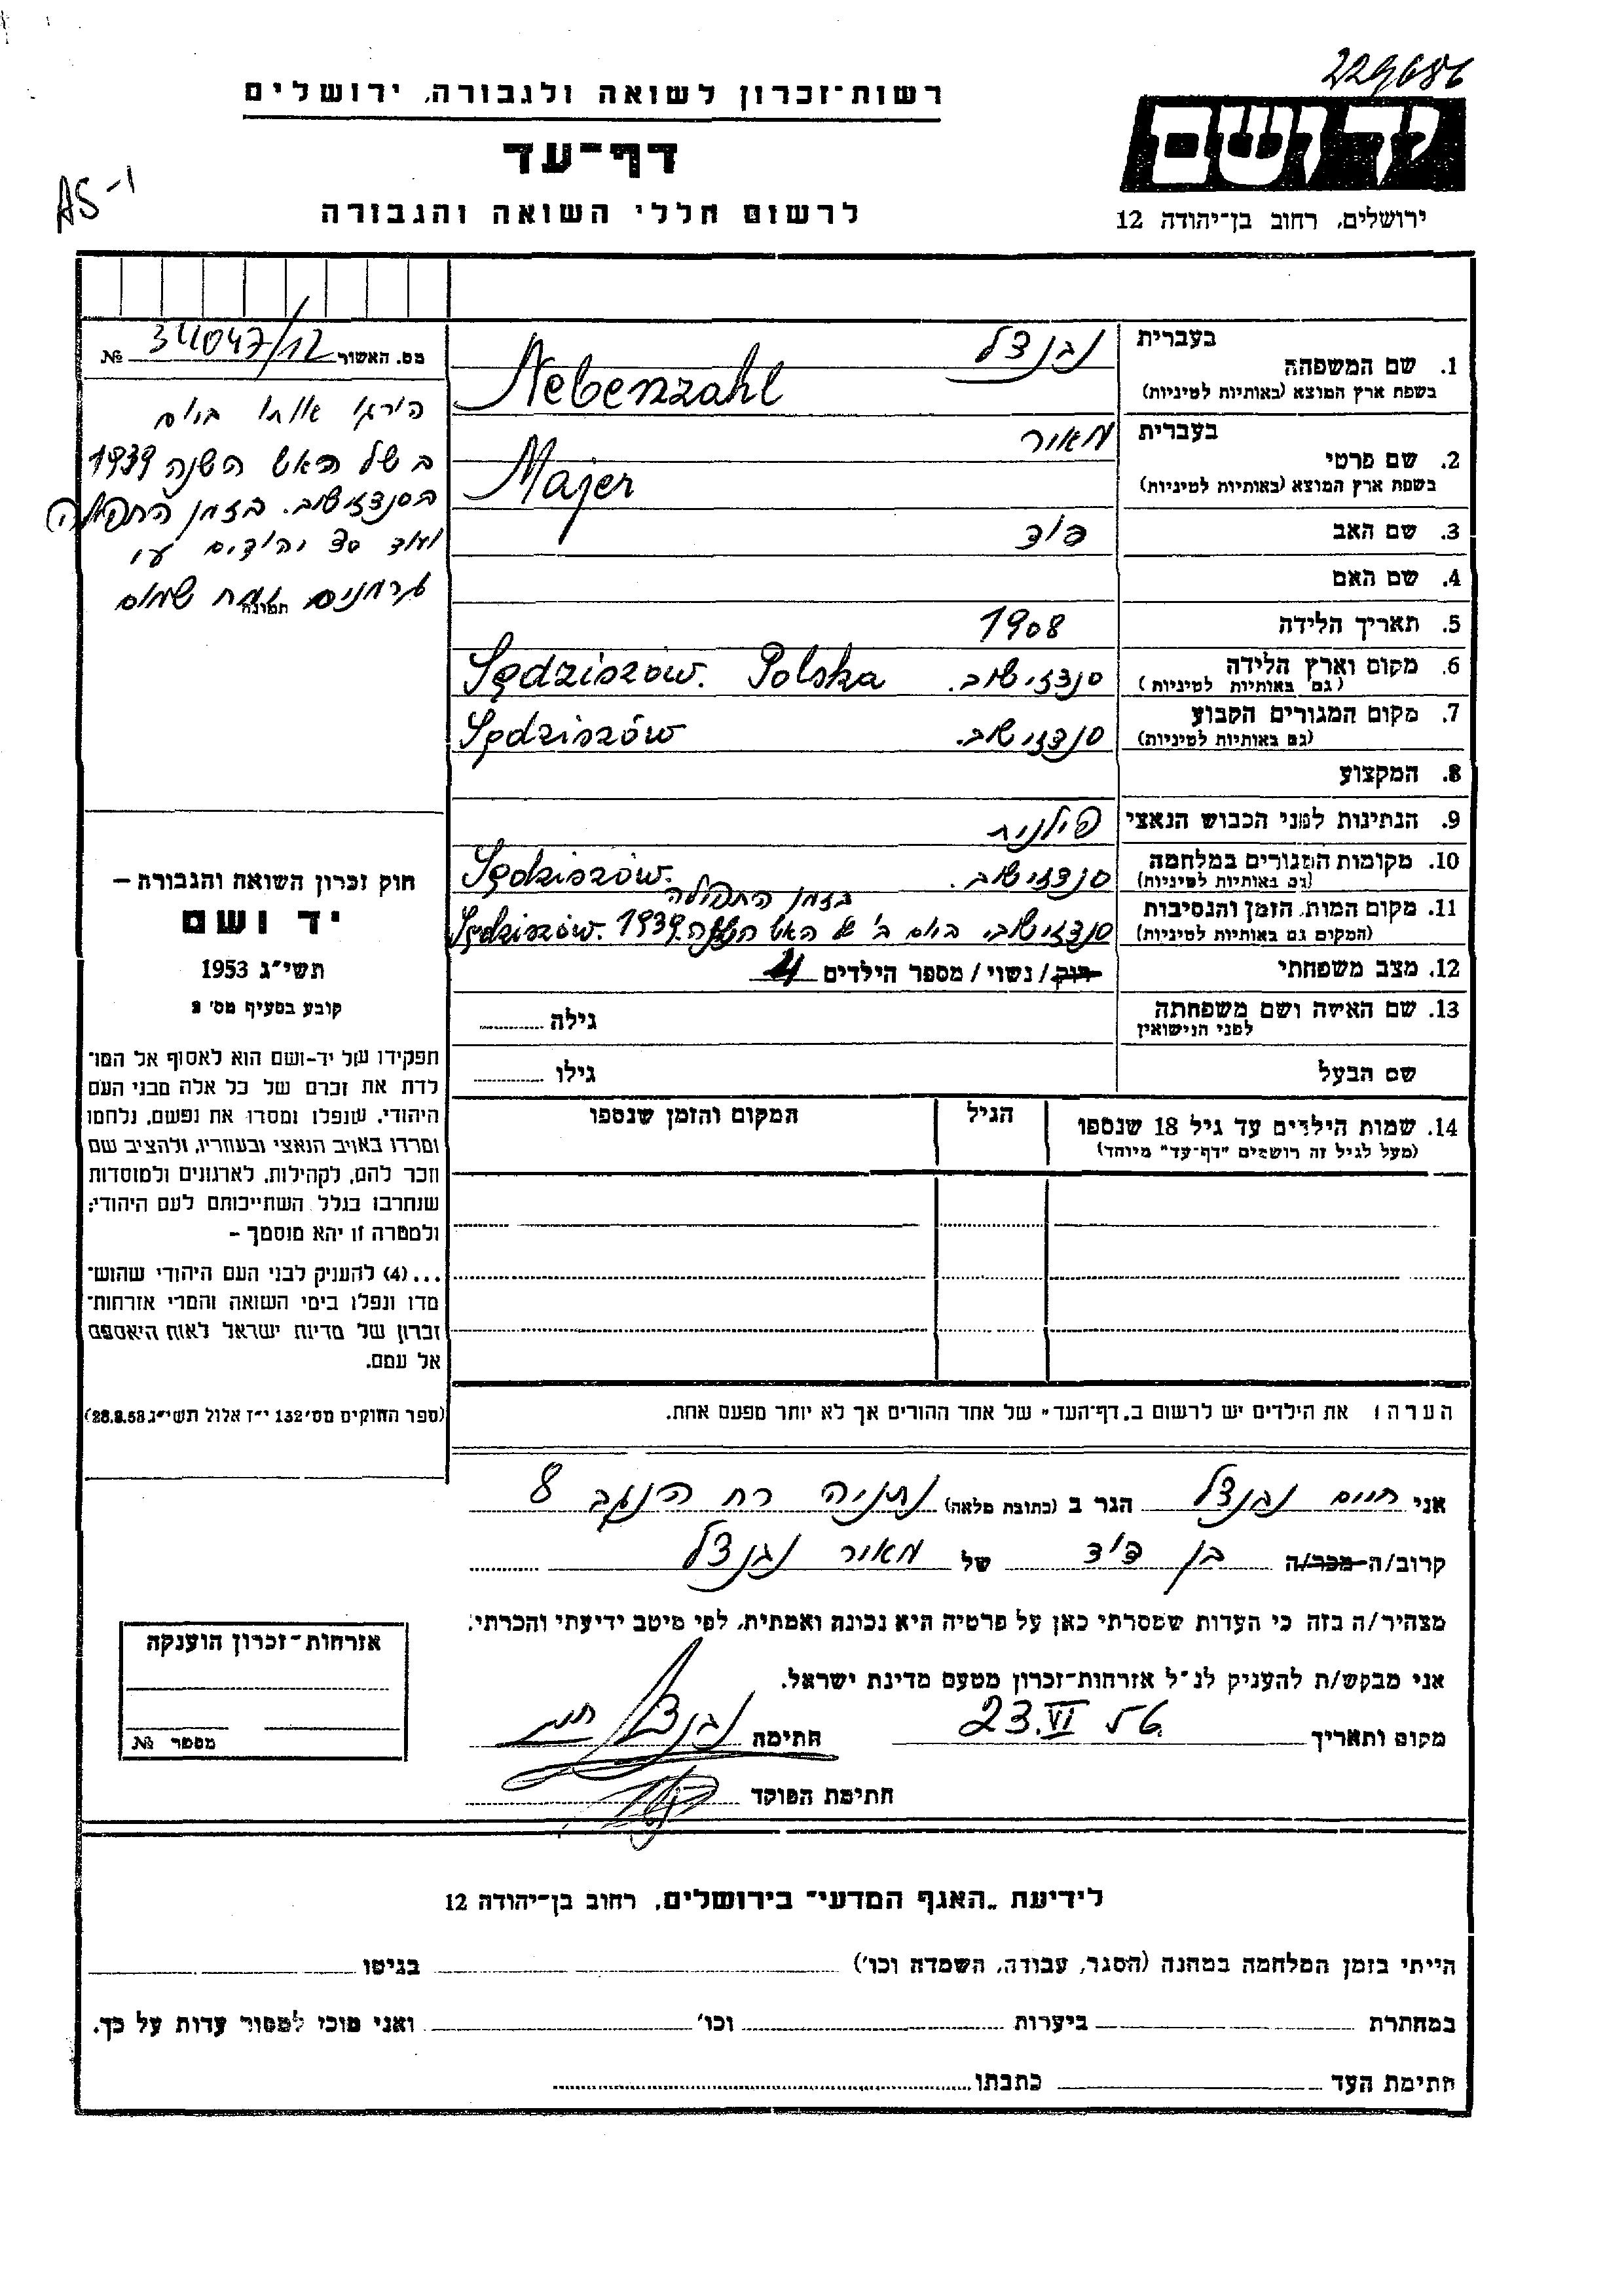 229686
רשות-זכרון לשואה ולגבורה, ירושלים
דף-עד
לרשום חללי השואה והגבורה
AS-1
יד ושם
ירושלים, רחוב בן-יהודה 12
מס. האשור 34047/12 №
הורגו אותו ביום
ב של ראש השנה 1939
בסנדזישוב. בזמן התפילה
ועוד 30 יהודים ע״י
גרמנים
תמונה
1. שם המשפחה
בעברית נבנצל
בשפת ארץ המוצא (באותיות לטיניות) Nebenzahl
2. שם פרטי
בעברית מאור
בשפת ארץ המוצא (באותיות לטיניות) Majer
3. שם האב
4. שם האם
5. תאריך הלידה 1908
6. מקום וארץ הלידה סנדזישוב. Sędziszów. Polska
(גם באותיות לטיניות)
7. מקום המגורים הקבוע סנדזישוב. Sędziszów
(גם באותיות לטיניות)
8. המקצוע
9. הנתינות לפני הכבוש הנאצי פולנית
10. מקומות המגורים במלחמה סנדזישוב. Sędziszów.
(גם באותיות לטיניות)
בזמן התפילה
11. מקום המות, הזמן והנסיבות סנדזישוב. ביום ב' של ראש השנה 1939. Sędziszów.
(המקום גם באותיות לטיניות)
12. מצב משפחתי רוק / נשוי / מספר הילדים 4
13. שם האישה ושם משפחתה גילה
לפני הנישואין
שם הבעל גילו
14. שמות הילדים עד גיל 18 שנספו הגיל המקום והזמן שנספו
(מעל לגיל זה רושמים "דף-עד" מיוחד)
חוק זכרון השואה והגבורה –
יד ושם
תשי"ג 1953
קובע בסעיף מס' 2
תפקידו של יד-ושם הוא לאסוף אל המו-
לדת את זכרם של כל אלה מבני העם
היהודי, שנפלו ומסרו את נפשם, נלחמו
ומרדו באויב הנאצי ובעוזריו, ולהציב שם
וזכר להם, לקהילות, לארגונים ולמוסדות
שנחרבו בגלל השתייכותם לעם היהודי;
ולמטרה זו יהא מוסמך –
...(4) להעניק לבני העם היהודי שהוש-
מדו ונפלו בימי השואה והמרי אזרחות-
זכרון של מדינת ישראל לאות היאספם
אל עמם.
(ספר החוקים מס' 132 י"ז אלול תשי"ג 28.8.53)
הערה: את הילדים יש לרשום ב„דף-העד" של אחד ההורים אך לא יותר מפעם אחת.
אני חיים נבנצל הגר ב (כתובת מלאה) נתניה רח הנגב 8
קרוב/ה מכר/ה בן דוד של מאור נבנצל
מצהיר/ה בזה כי העדות שמסרתי כאן על פרטיה היא נכונה ואמתית, לפי מיטב ידיעתי והכרתי.
אני מבקש/ת להעניק לנ"ל אזרחות-זכרון מטעם מדינת ישראל.
מקום ותאריך 23.VI 56 חתימה נבנצל חיים
חתימת הפוקד
אזרחות-זכרון הוענקה
מספר №
לידיעת „האגף המדעי" בירושלים, רחוב בן-יהודה 12
הייתי בזמן המלחמה במחנה (הסגר, עבודה, השמדה וכו') בגיטו
במחתרת ביערות וכו' ואני מוכן למסור עדות על כך.
חתימת העד כתבתו